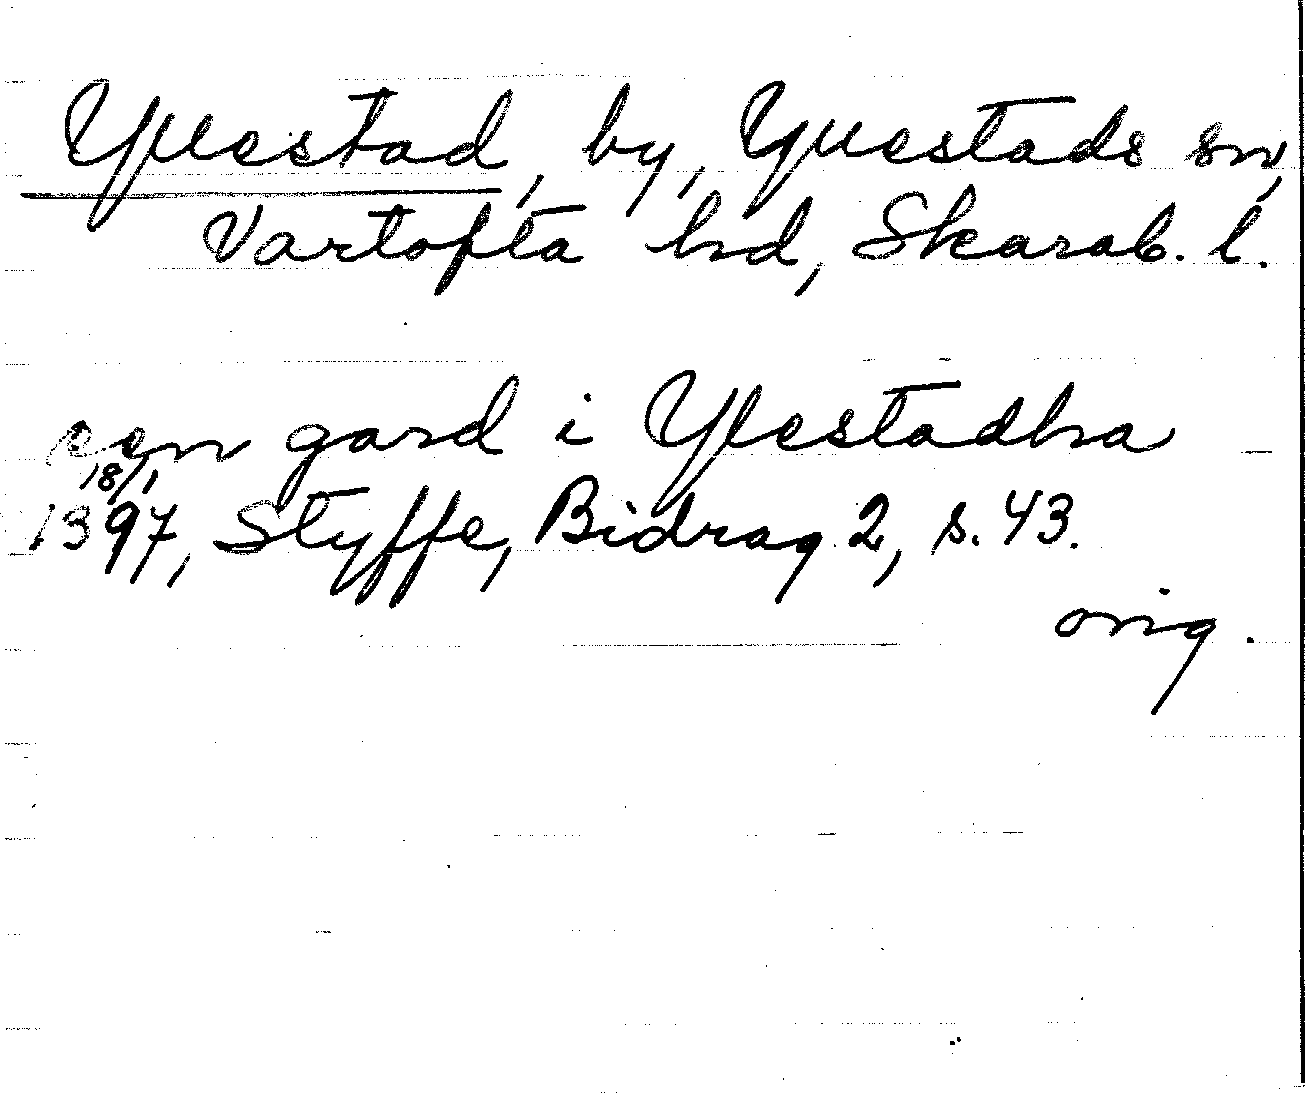 Yllestad, by, Yllestads sn,
Vartofta hd, Skarab. l.
een gard i Ylestadha
18/1
1397, Styffe, Bidrag 2, s. 43.
orig.